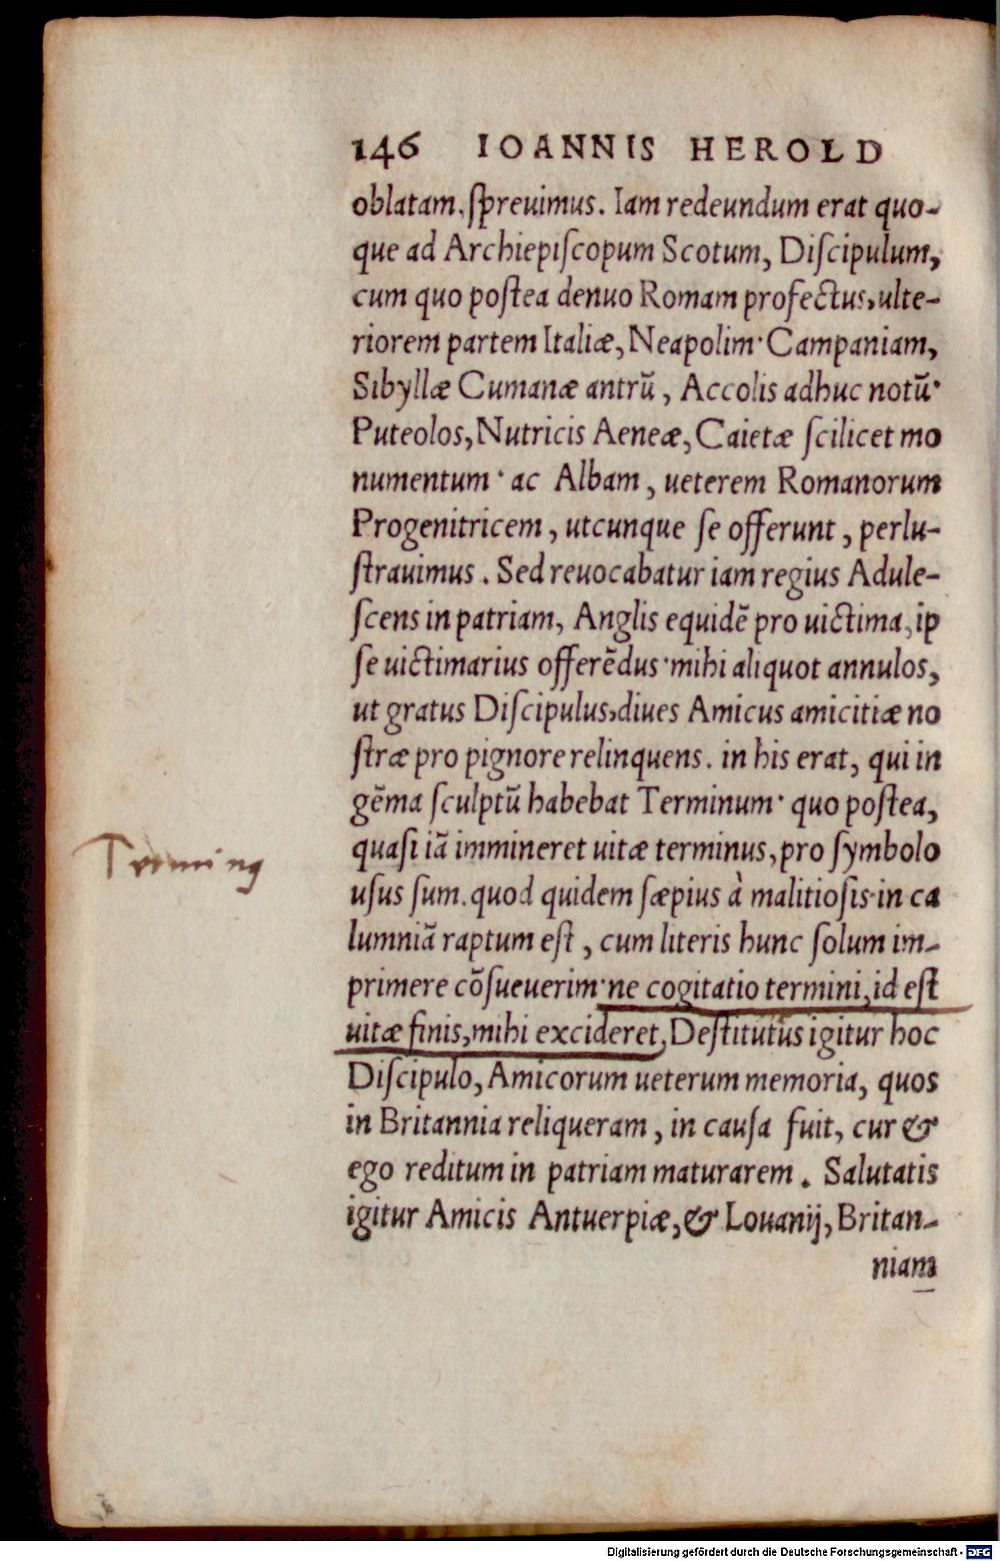 146 IOANNIS HEROLD
oblatam, spreuimus. Iam redeundum erat quo-
que ad Archiepiscopum Scotum, Discipulum,
cum quo postea denuo Romam profectus, ulte-
riorem partem Italiæ, Neapolim· Campaniam,
Sibyllæ Cumanæ antrũ, Accolis adhuc notũ·
Puteolos, Nutricis Aeneæ, Caietæ scilicet mo
numentum· ac Albam, ueterem Romanorum
Progenitricem, utcunque se offerunt, perlu-
strauimus. Sed reuocabatur iam regius Adule-
scens in patriam, Anglis equidẽ pro uictima, ip
se uictimarius offerẽdus· mihi aliquot annulos,
ut gratus Discipulus, diues Amicus amicitiæ no
stræ pro pignore relinquens. in his erat, qui in
gẽma sculptũ habebat Terminum· quo postea,
quasi iã immineret uitæ terminus, pro symbolo
usus sum. quod quidem sæpius à malitiosis· in ca
lumniã raptum est, cum literis hunc solum im-
primere cõsueuerim· ne cogitatio termini, id est
uitæ finis, mihi excideret, Destitutus igitur hoc
Discipulo, Amicorum ueterum memoria, quos
in Britannia reliqueram, in causa fuit, cur &
ego reditum in patriam maturarem. Salutatis
igitur Amicis Antuerpiæ, & Louanij, Britan-
niam
Terminus
Digitalisierung gefördert durch die Deutsche Forschungsgemeinschaft - DFG